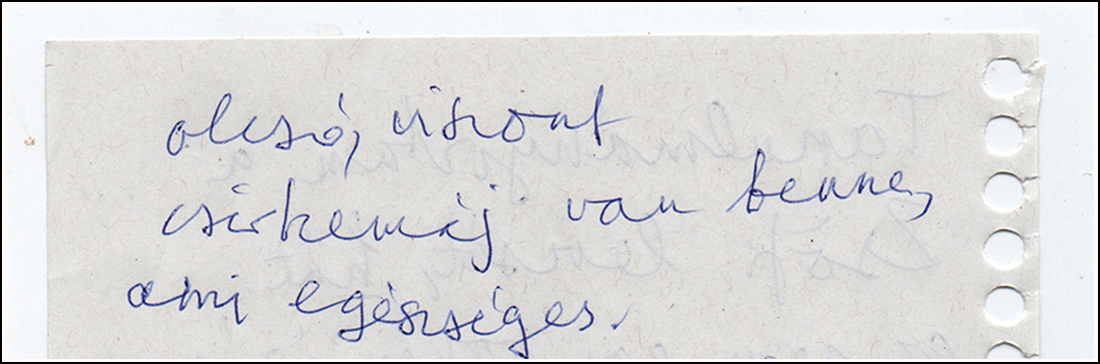 olcsó, viszont
csirkemáj van benne,
ami egészséges.